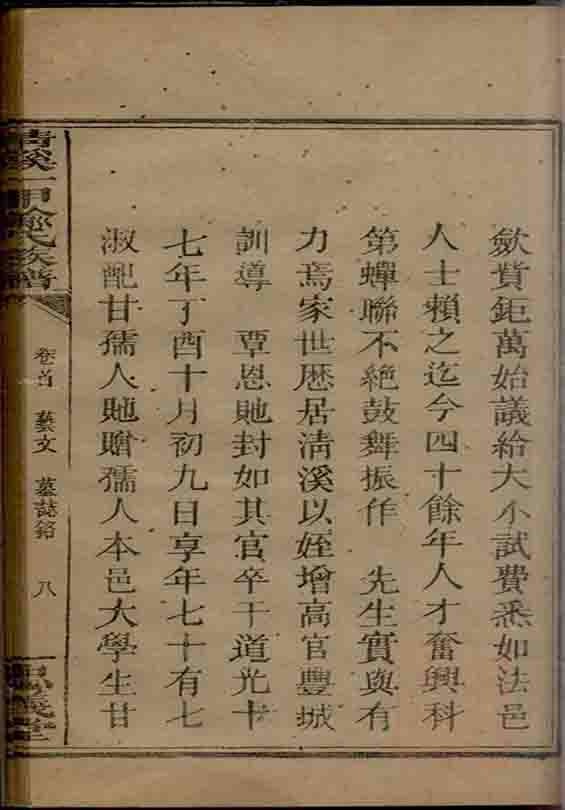 歛費鉅萬始議給大小試費悉如法邑
人士賴之迄今四十餘年人才奮興科
第蟬聯不絶鼓舞振作　先生實與有
力焉家世歷居清溪以姪增高官豐城
訓導　覃恩貤封如其官卒于道光十
七年丁酉十月初九日享年七十有七
淑配甘孺人貤贈孺人本邑大學生甘
族譜
卷首　藝文　墓誌銘　八
堂